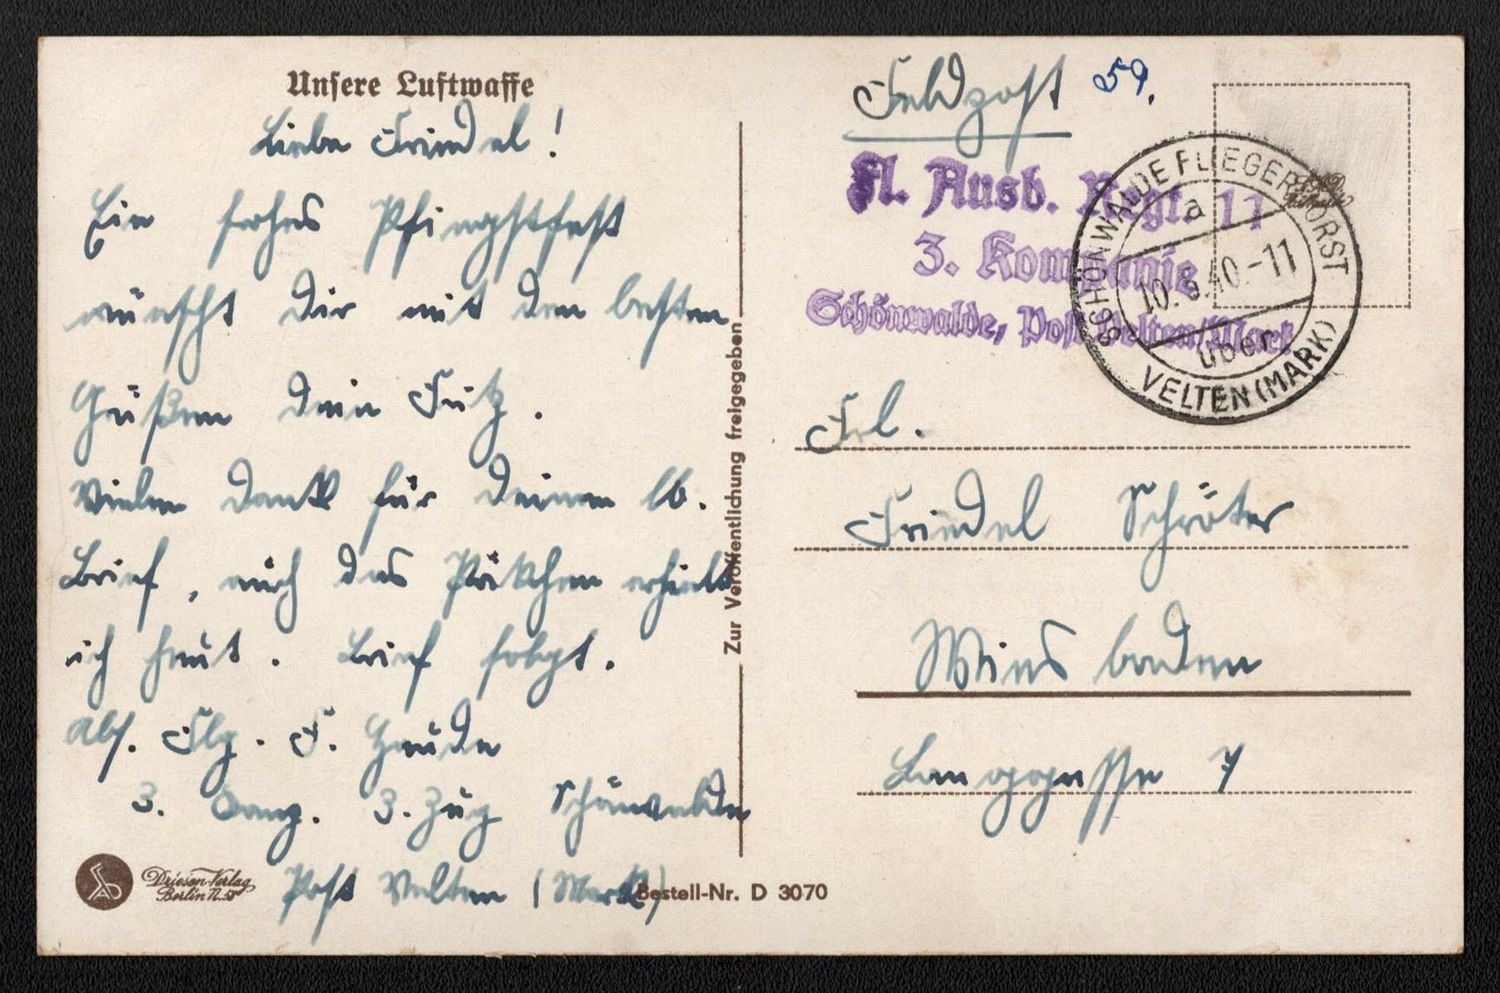 Unsere Luftwaffe
Liebe Friedel!
Ein frohes Pfingstfest
wünscht Dir mit den besten
Grüßen dein Fritz.
Vielen Dank für deinen lb.
Brief, auch das Päckchen erhielt
ich heut. Brief folgt.
Abs. Flg. F.
3. Komp. 3. Zug Schönwalde
Post Velten (Mark)
Driesen-Verlag
Berlin
Bestell-Nr. D 3070
Zur Veröffentlichung freigegeben
Feldpost 59.
Fl. Ausb. Regt. 11
3. Kompanie
Schönwalde, Post Velten/Mark
SCHÖNWALDE FLIEGERHORST
a
10.5.40.-11
über
VELTEN (MARK)
Frl.
Friedel Schröter
Wiesbaden
Langgasse 7